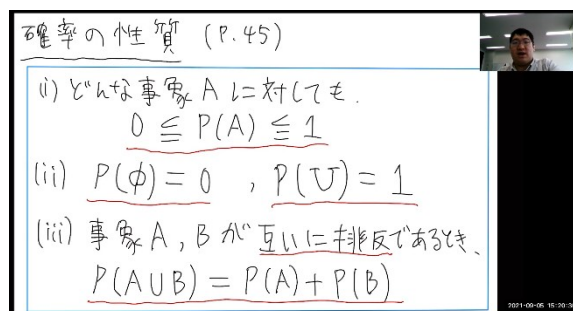 確率の性質 (P.45)
(i) どんな事象Aに対しても.
0 ≦ P(A) ≦ 1
(ii) P(φ) = 0 , P(U) = 1
(iii) 事象A, Bが互いに排反であるとき、
P(A∪B) = P(A) + P(B)
2021-09-05 15:20:3